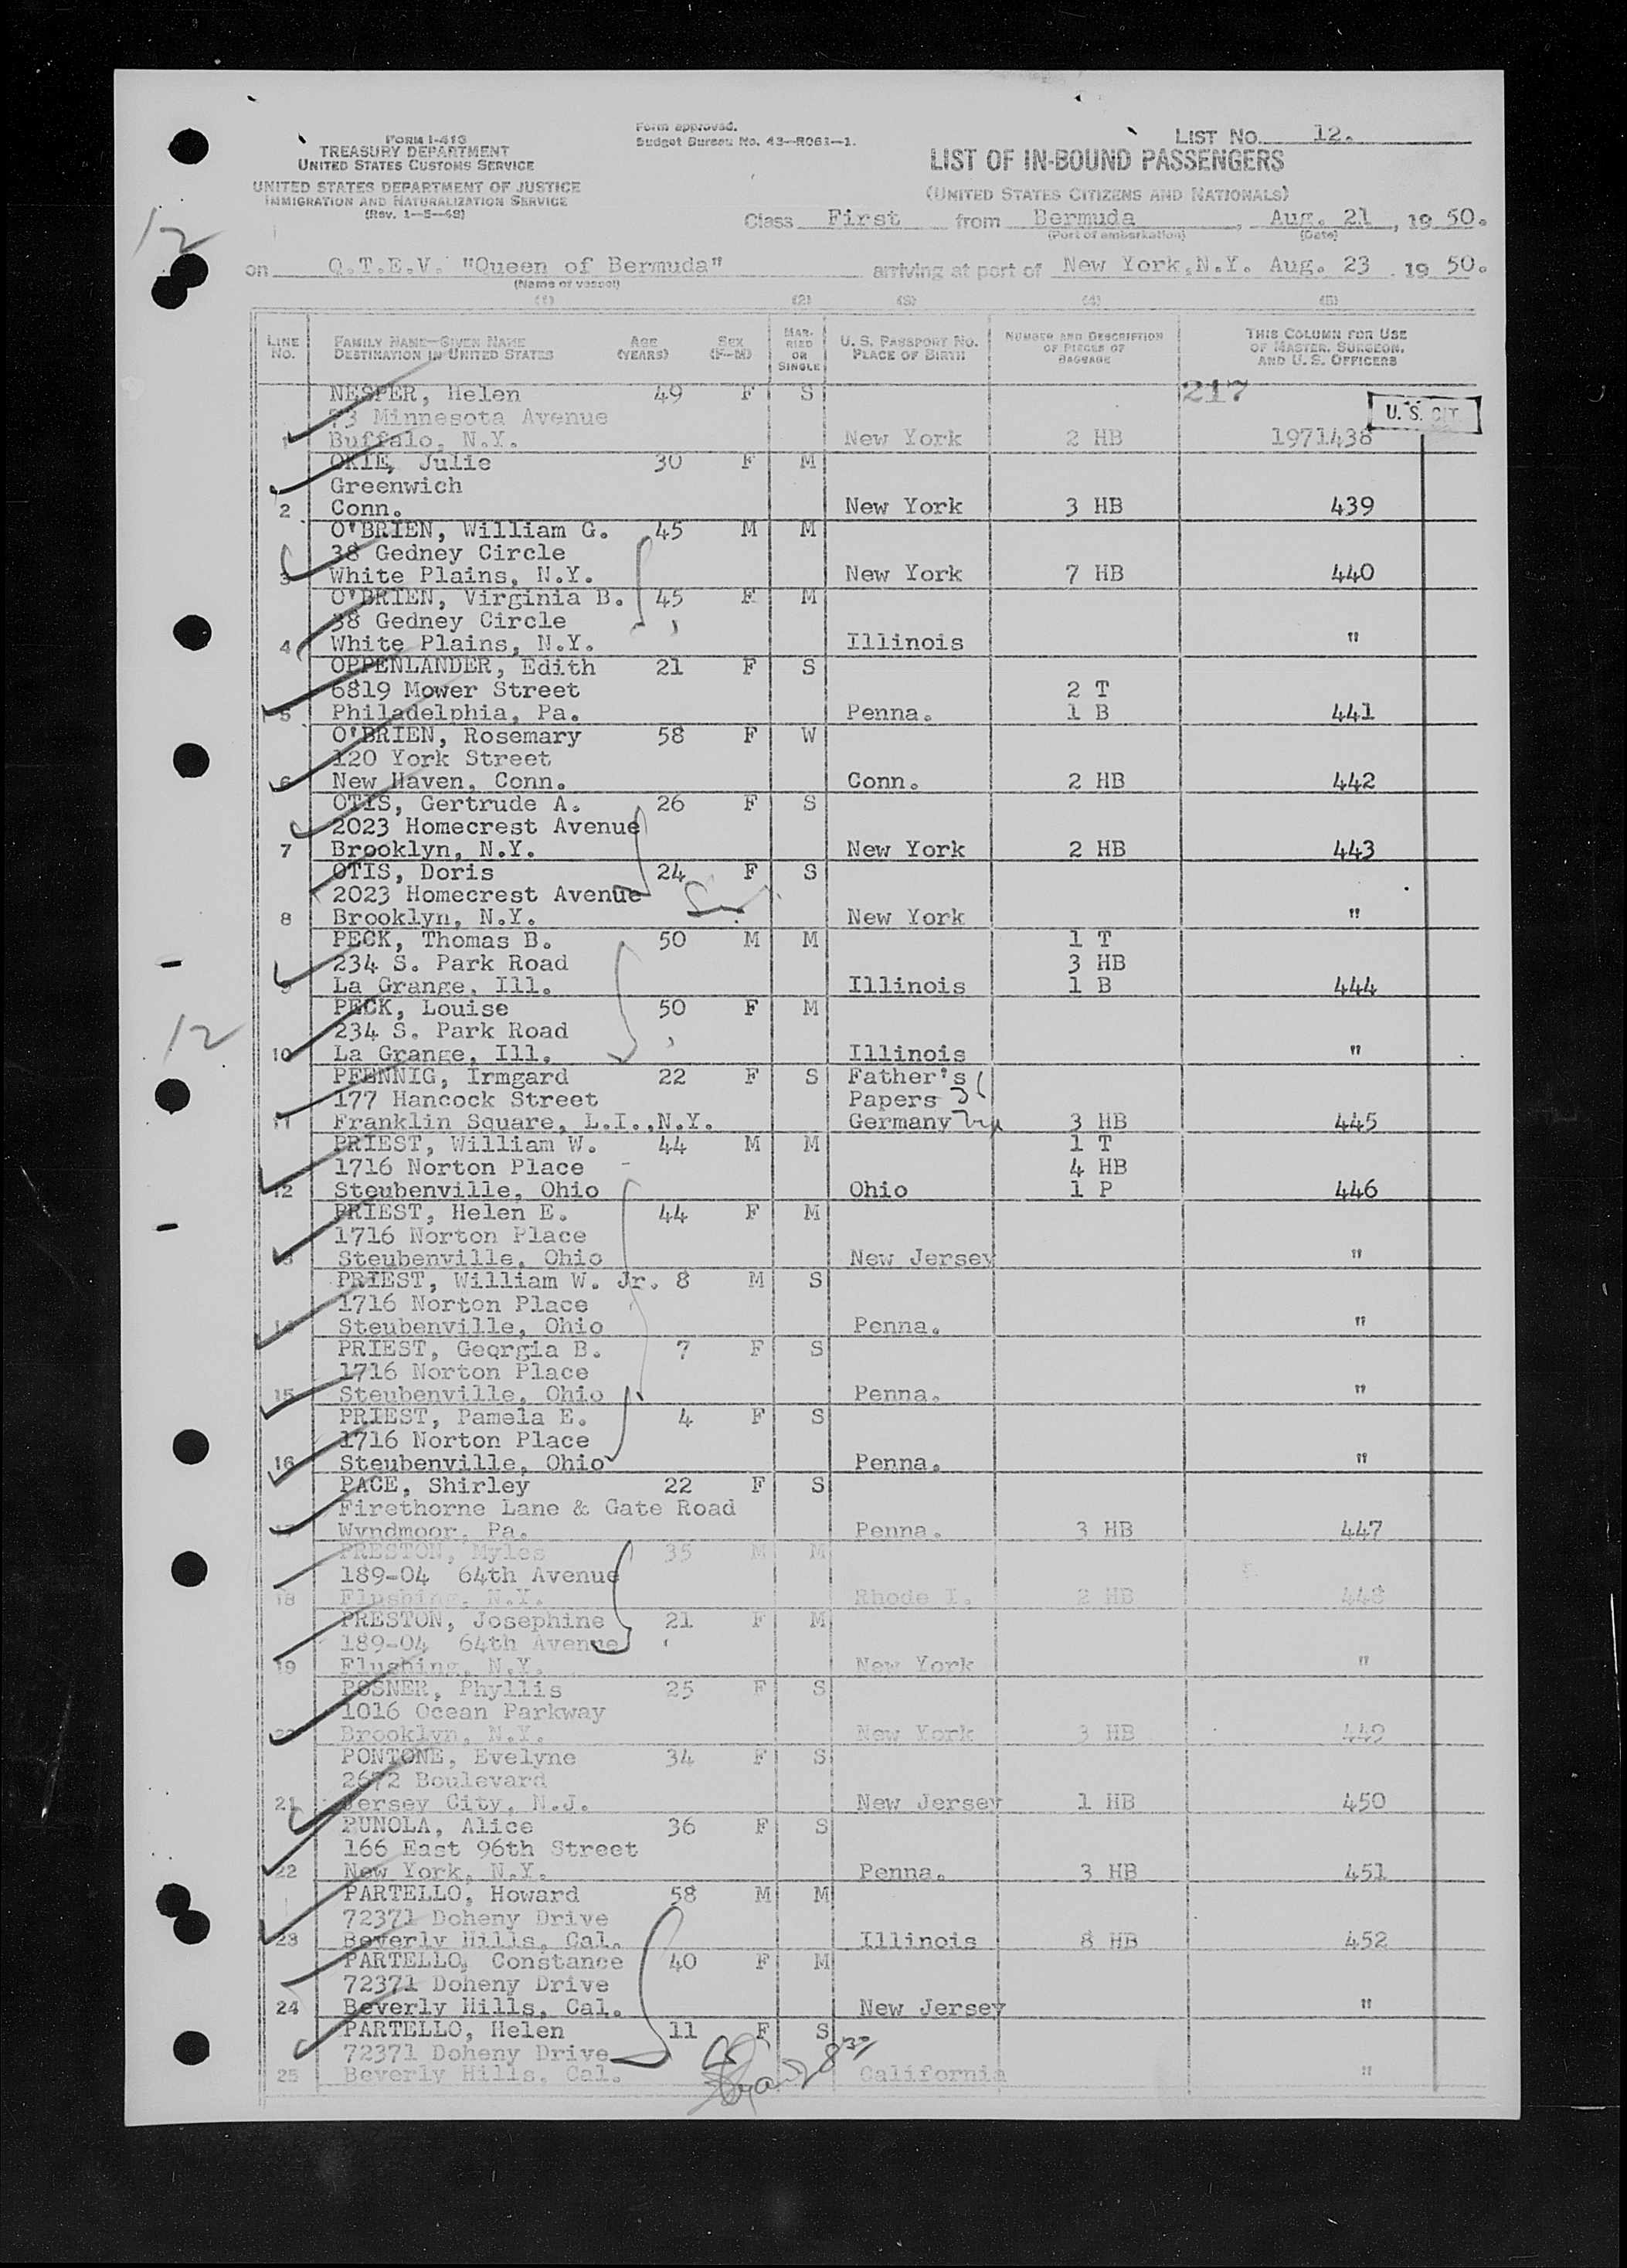 FORM I-418
TREASURY DEPARTMENT
UNITED STATES CUSTOMS SERVICE
UNITED STATES DEPARTMENT OF JUSTICE
IMMIGRATION AND NATURALIZATION SERVICE
(Rev. 1-5-48)
Form approved.
Budget Bureau No. 43-R061-1.
LIST NO. 12.
LIST OF IN-BOUND PASSENGERS
(UNITED STATES CITIZENS AND NATIONALS)
Class First from Bermuda, Aug. 21, 19 50.
(Port of embarkation) (Date)
12
on Q.T.E.V. "Queen of Bermuda" arriving at port of New York, N.Y. Aug. 23 19 50.
(Name of vessel)
(1) (2) (3) (4) (5)
LINE NO. FAMILY NAME—GIVEN NAME DESTINATION IN UNITED STATES AGE (YEARS) SEX (F-M) MARRIED OR SINGLE U. S. PASSPORT NO. PLACE OF BIRTH NUMBER AND DESCRIPTION OF PIECES OF BAGGAGE THIS COLUMN FOR USE OF MASTER, SURGEON, AND U. S. OFFICERS
217
U. S. CIT
NESPER, Helen 49 F S
73 Minnesota Avenue
1 Buffalo, N.Y. New York 2 HB 1971438
OKIE, Julie 30 F M
Greenwich
2 Conn. New York 3 HB 439
O'BRIEN, William G. 45 M M
38 Gedney Circle
3 White Plains, N.Y. New York 7 HB 440
O'BRIEN, Virginia B. 45 F M
38 Gedney Circle
4 White Plains, N.Y. Illinois "
OPPENLANDER, Edith 21 F S
6819 Mower Street 2 T
5 Philadelphia, Pa. Penna. 1 B 441
O'BRIEN, Rosemary 58 F W
120 York Street
6 New Haven, Conn. Conn. 2 HB 442
OTIS, Gertrude A. 26 F S
2023 Homecrest Avenue
7 Brooklyn, N.Y. New York 2 HB 443
OTIS, Doris 24 F S
2023 Homecrest Avenue
8 Brooklyn, N.Y. New York "
PECK, Thomas B. 50 M M 1 T
234 S. Park Road 3 HB
9 La Grange, Ill. Illinois 1 B 444
PECK, Louise 50 F M
234 S. Park Road
12
10 La Grange, Ill. Illinois "
PFENNIG, Irmgard 22 F S Father's
177 Hancock Street Papers
11 Franklin Square, L.I.,N.Y. Germany 3 HB 445
PRIEST, William W. 44 M M 1 T
1716 Norton Place 4 HB
12 Steubenville, Ohio Ohio 1 P 446
PRIEST, Helen E. 44 F M
1716 Norton Place
13 Steubenville, Ohio New Jersey "
PRIEST, William W. Jr. 8 M S
1716 Norton Place
14 Steubenville, Ohio Penna. "
PRIEST, Georgia B. 7 F S
1716 Norton Place
15 Steubenville, Ohio Penna. "
PRIEST, Pamela E. 4 F S
1716 Norton Place
16 Steubenville, Ohio Penna. "
PACE, Shirley 22 F S
Firethorne Lane & Gate Road
17 Wyndmoor, Pa. Penna. 3 HB 447
PRESTON, Myles 35 M M
189-04 64th Avenue
18 Flushing, N.Y. Rhode I. 2 HB 448
PRESTON, Josephine 21 F M
189-04 64th Avenue
19 Flushing, N.Y. New York "
POSNER, Phyllis 25 F S
1016 Ocean Parkway
20 Brooklyn, N.Y. New York 3 HB 449
PONTONE, Evelyne 34 F S
2672 Boulevard
21 Jersey City, N.J. New Jersey 1 HB 450
PUNOLA, Alice 36 F S
166 East 96th Street
22 New York, N.Y. Penna. 3 HB 451
PARTELLO, Howard 58 M M
72371 Doheny Drive
23 Beverly Hills, Cal. Illinois 8 HB 452
PARTELLO, Constance 40 F M
72371 Doheny Drive
24 Beverly Hills, Cal. New Jersey "
PARTELLO, Helen 11 F S
72371 Doheny Drive
25 Beverly Hills, Cal. California "